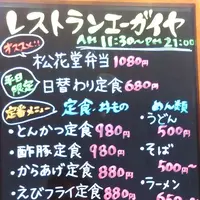 レストランエーガイヤ
オススメ!! AM 11:30~PM 21:00
松花堂弁当 1080円
平日限定 日替わり定食 680円
定番メニュー 定食・丼もの めん類
・とんかつ定食 980円 ・うどん 500円
・酢豚定食 980円 ・そば 500円~
・からあげ定食 880円 ・ラーメン
・えびフライ定食 880円 650円